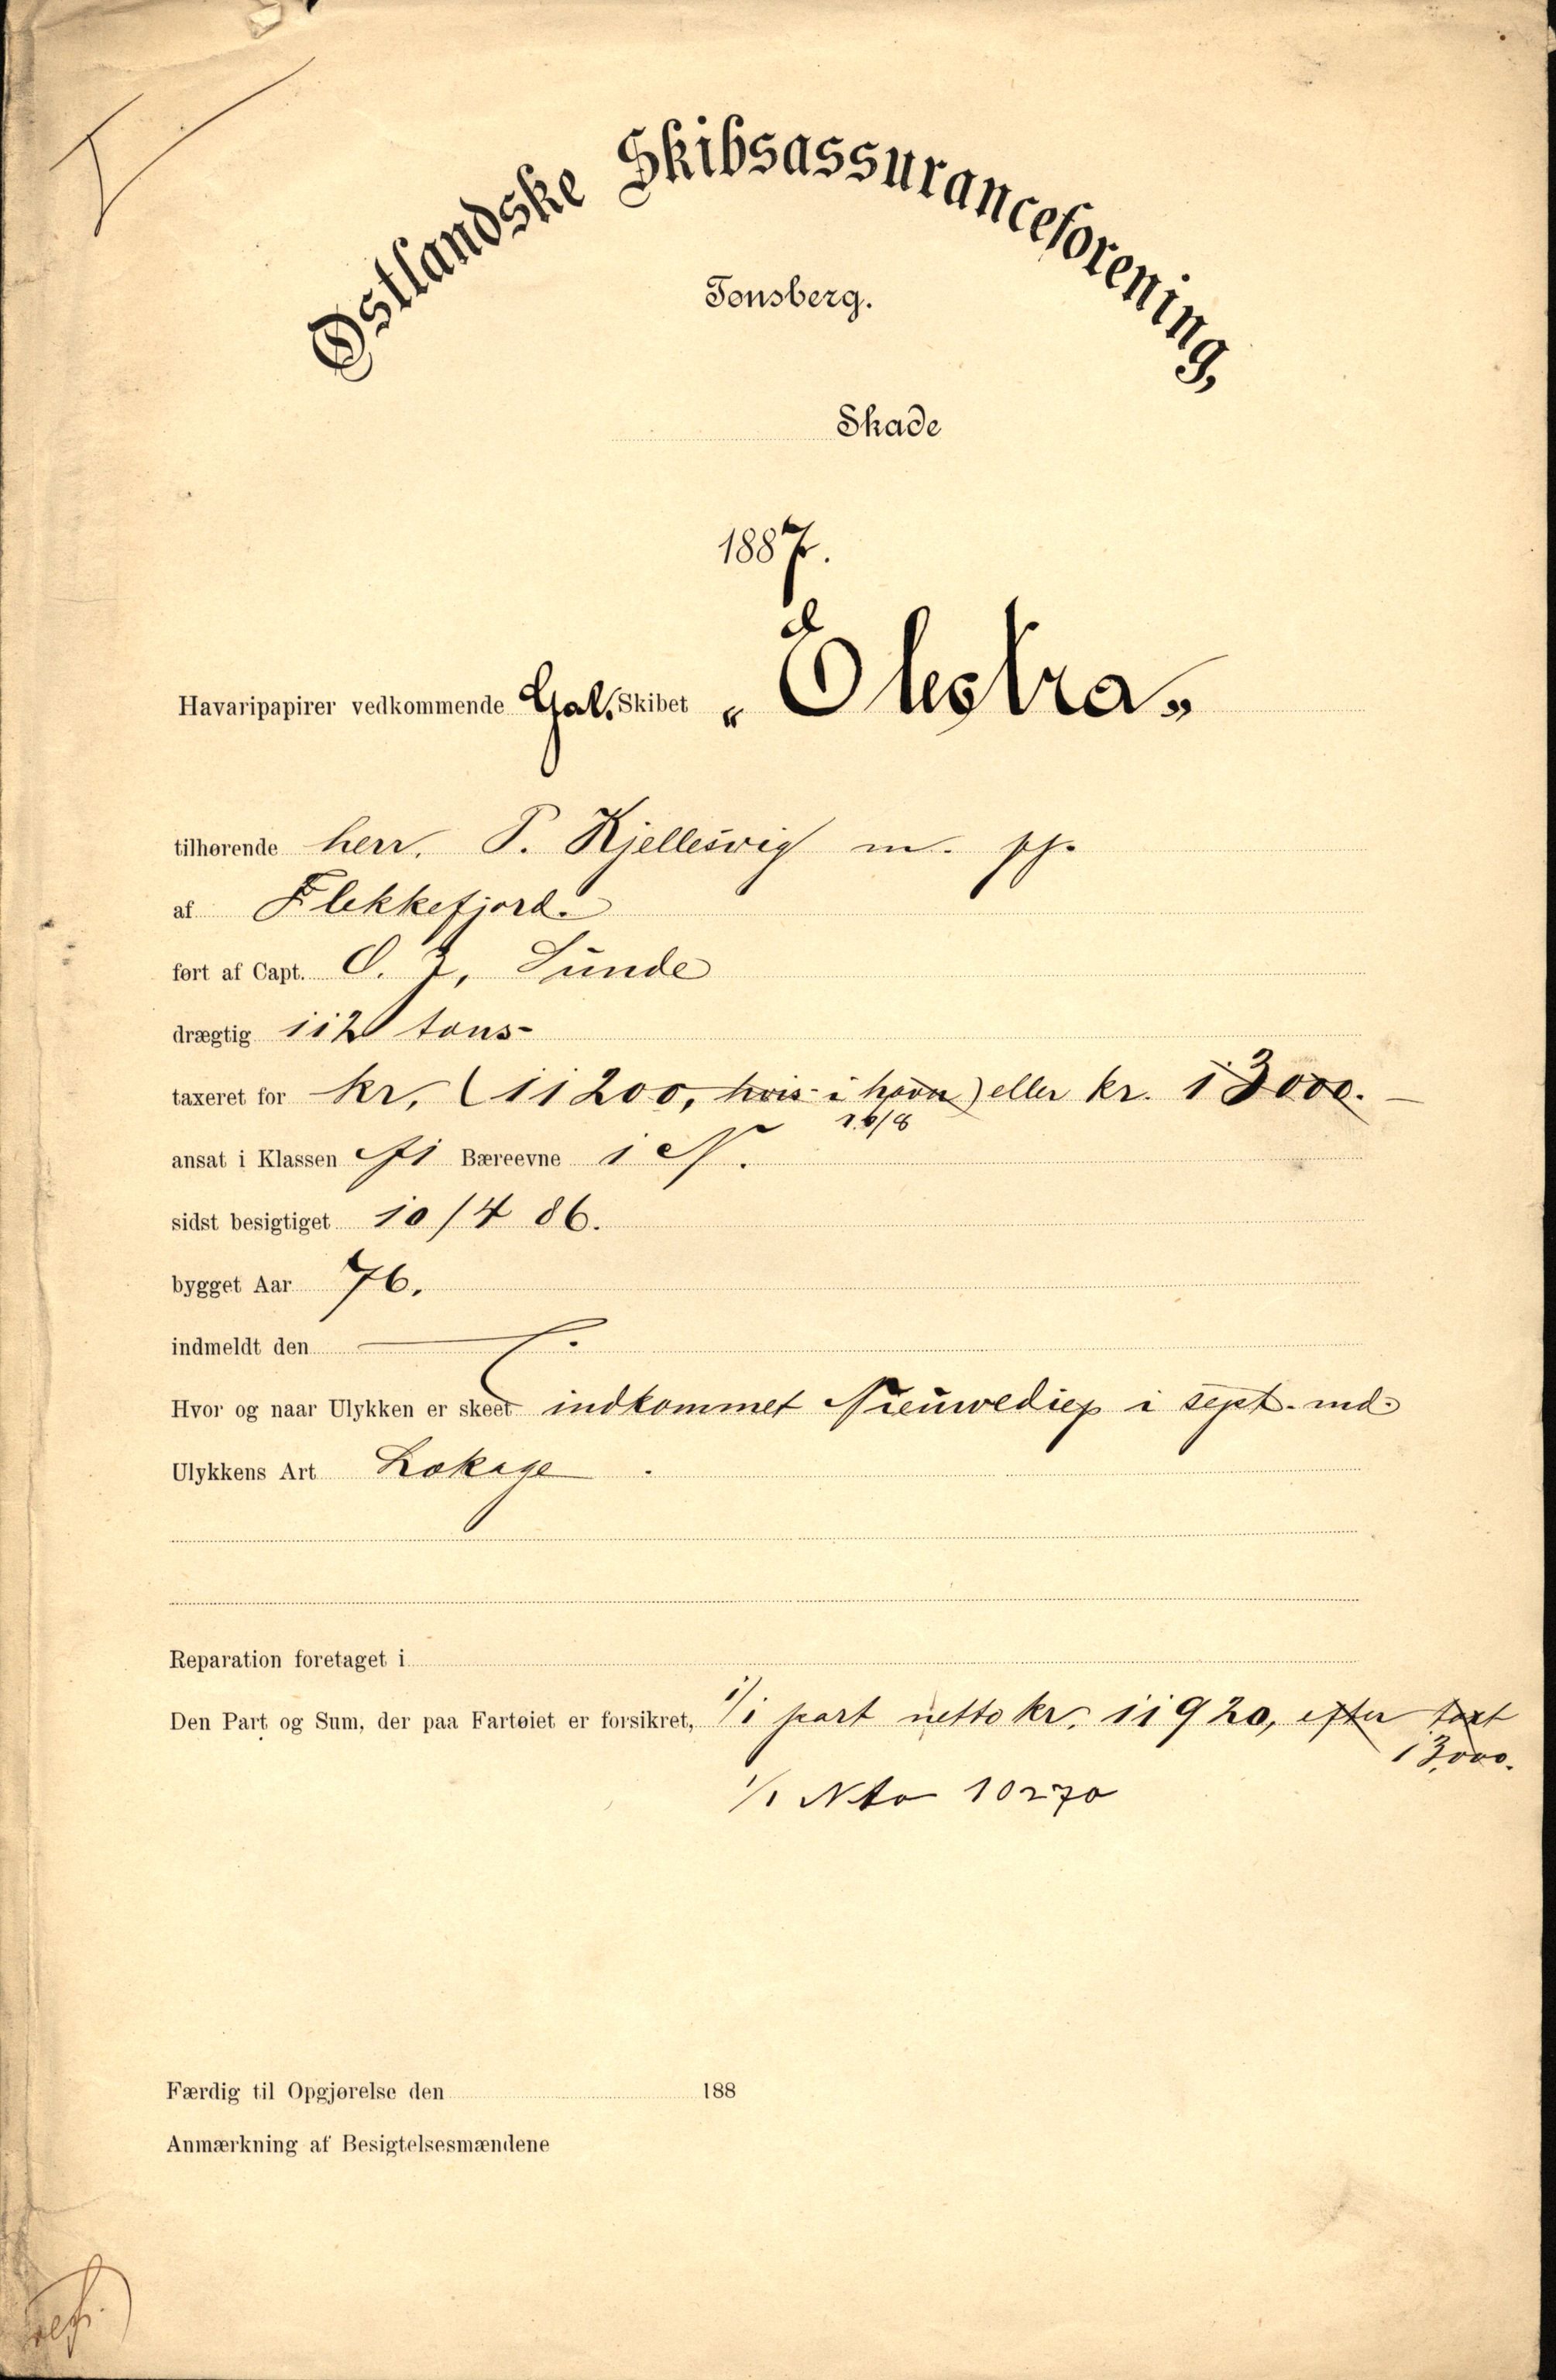 Østlandske Skibsassuranceforening,
Tønsberg.
Skade
1887.
Havaripapirer vedkommende Gal. Skibet „Elektra„
tilhørende herr. P. Kjellesvig m. fl.
af Flekkefjord.
ført af Capt. O. J. Sunde
drægtig 112 tons
taxeret for kr. (11200, hvis i havn) eller kr. 13000.
16/8
ansat i Klassen A1 Bæreevne 1 N.
sidst besigtiget 10/4 86.
bygget Aar 76.
indmeldt den
Hvor og naar Ulykken er skeet indkommet Nieuwediep i sept. md.
Ulykkens Art Lækage.
Reparation foretaget i
Den Part og Sum, der paa Fartøiet er forsikret, 1/1 part netto kr. 11920, efter taxt
13,000.
1/1 Nto 10270
Færdig til Opgjørelse den 188
Anmærkning af Besigtelsesmændene